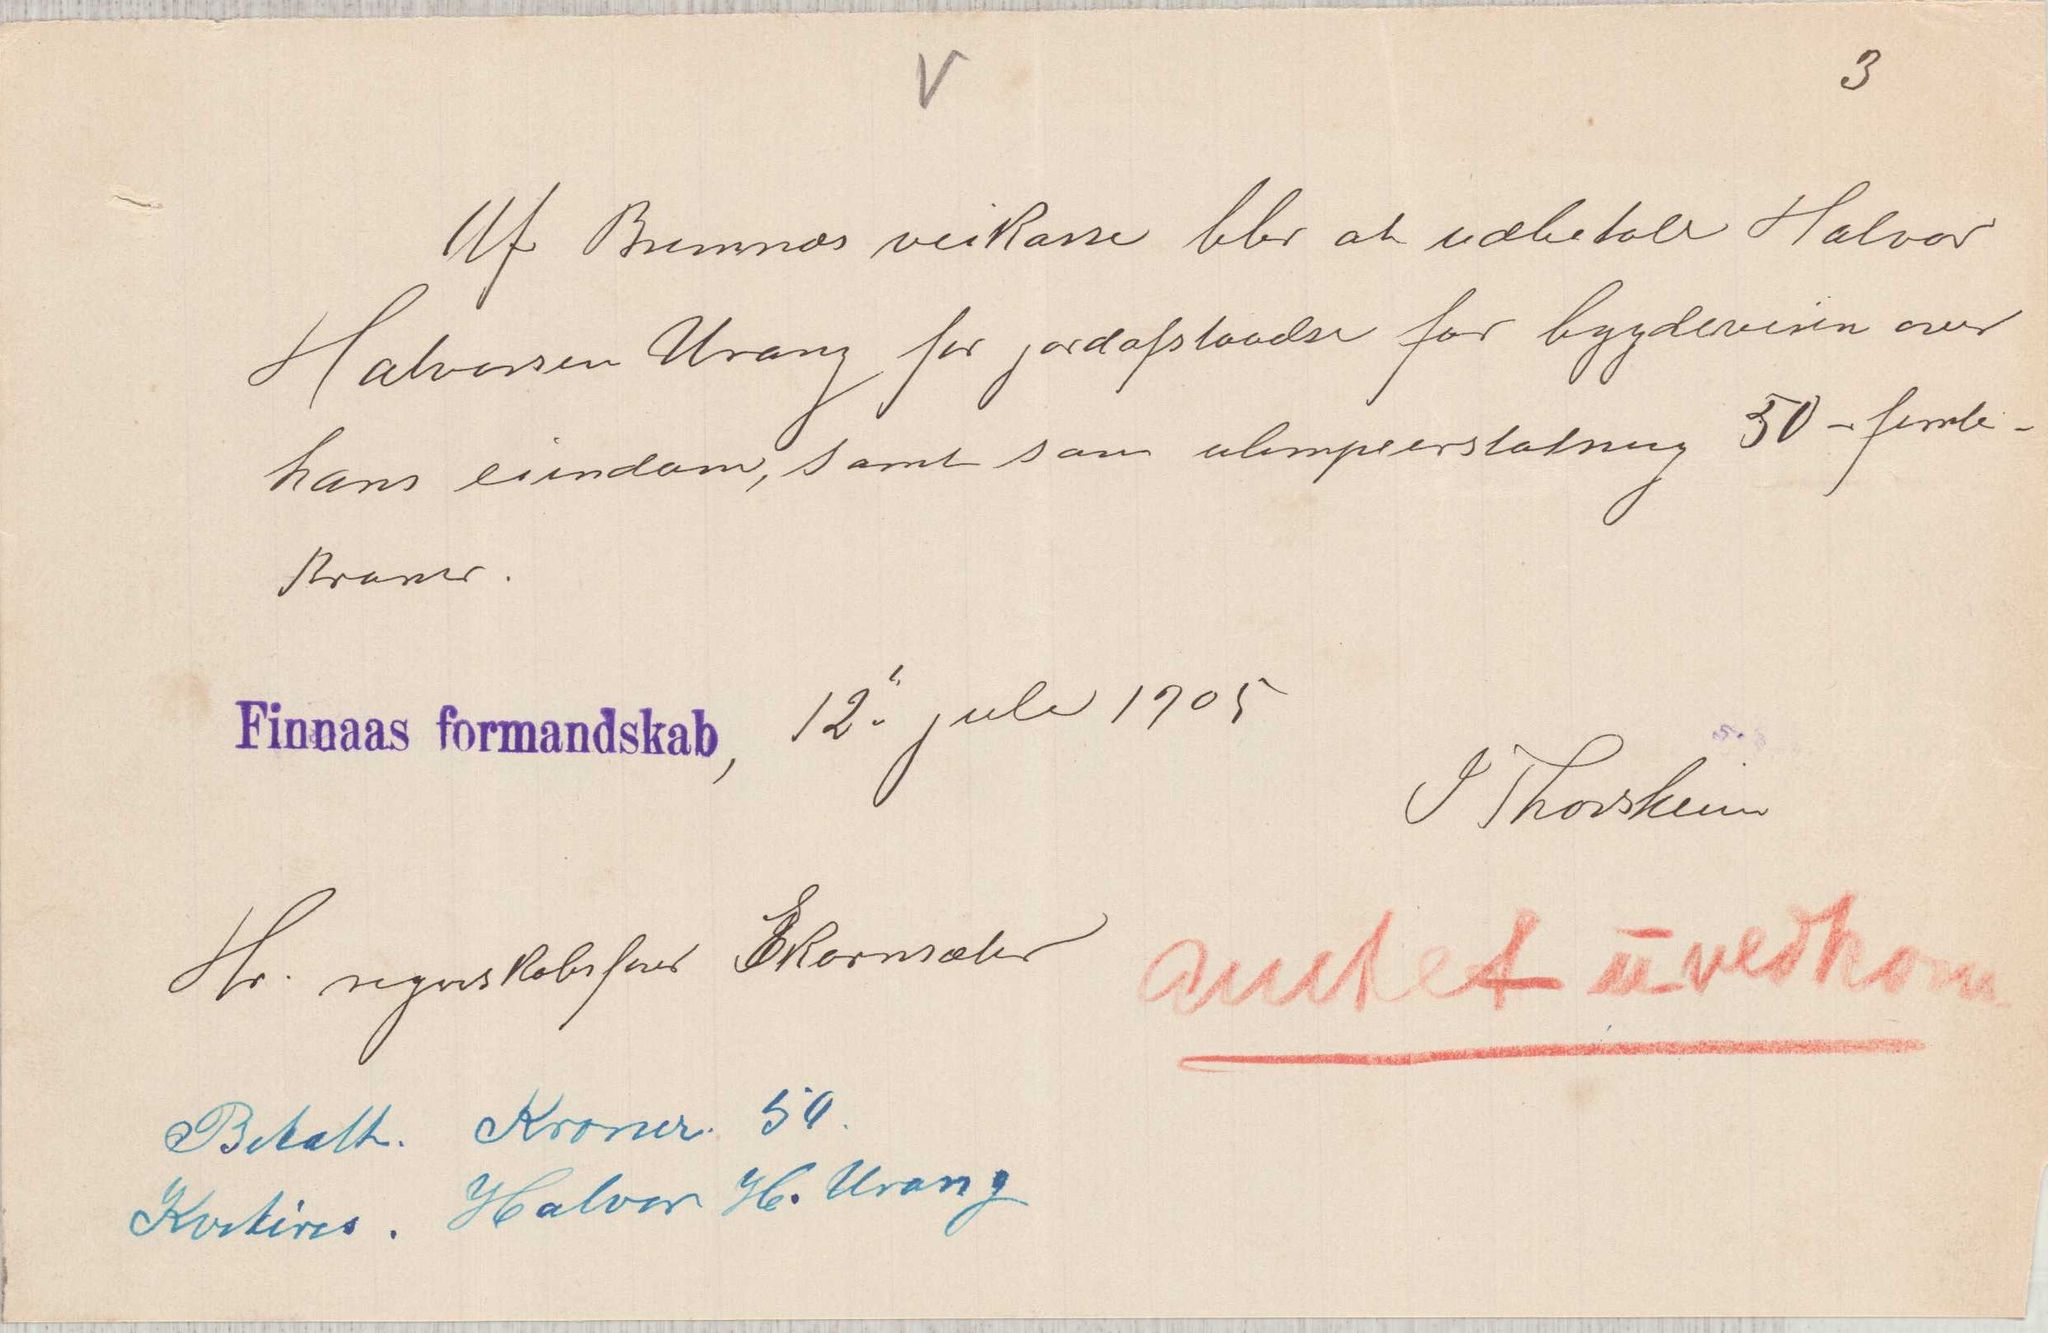 V
3
Af Bremnæs veikasse blir at udbetale Halvor
Halvorsen Urang for jordafstaaelse for bygdeveien over
hans eiendom, samt som ulempeerstatning 50 - femti -
kroner.
Finnaas formandskab, 12. juli 1905
J Thorsheim
Hr. regnskabsfører Ekornsæter
amtet uvedkom
Betalt. Kroner 50.
Kviteres. Halvor H. Urang